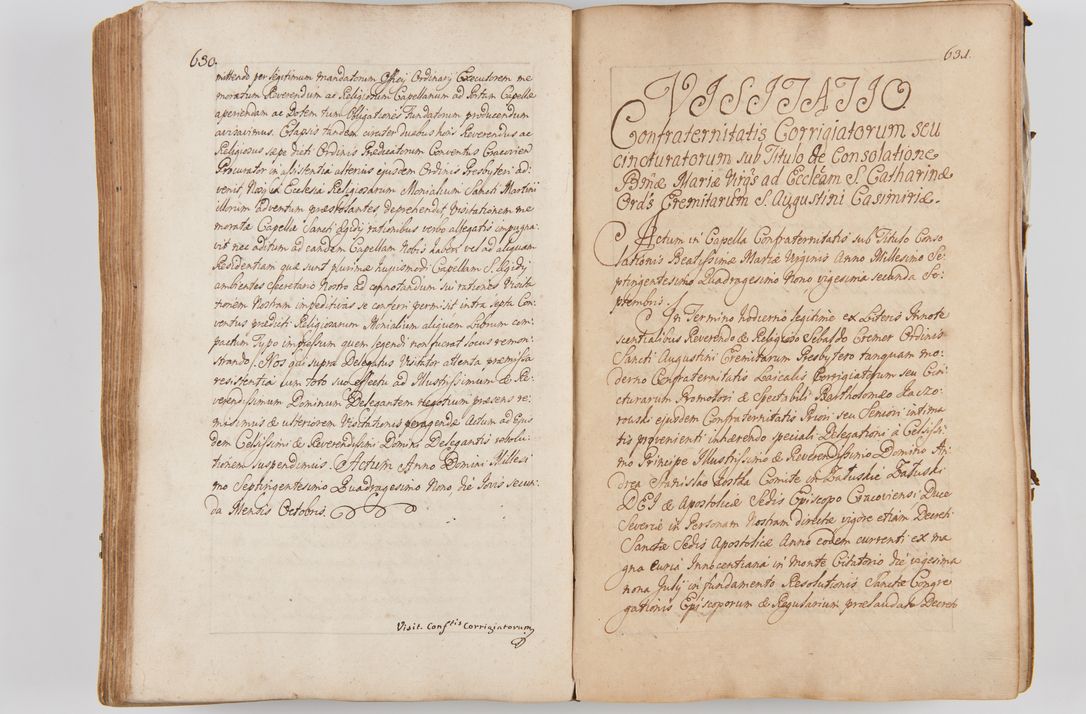 630.
mittendo per legitimum mandatorum Officij Ordinarij Executorem me
moratum Reverendum ac Religiosum Capellanum ad Portam Capellæ
aperiendam ac Dotem tum Obligationes Fundatorum producendum
avizavimus. Elapsis tandem circiter duabus horis Reverendus ac
Religiosus sæpe dicti Ordinis Prædicatorum Conventus Cracovien
Procurator in assistentia alterius ejusdem Ordinis Presbyteri ad:
venit Nos in Ecclesia Religiosarum Monialium Sancti Martini
illorum adventum præstolantes, deprehendit, Visitationem me
moratæ Capellæ Sancti Ægidij rationibus verbo allegatis impugna:
vit nec aditum ad eandem Capellam Nobis dedit, vel ad aliquam
Residentiam quæ sunt plurimæ hujusmodi Capellam S. Ægidij
ambientes Secretario Nostro ad connotandum sui rationes Visita
tionem Nostram impeditivas se conferri permisit intra septa Con:
ventus prædicti Religiosarum Monialium aliquem Librum com:
pactum Typo impressum quem legendi non fuerat locus remon:
strando. Nos qui supra Delegatus Visitator attenta præmissa
resistentia cum toto suo effectu ad Illustrissimum & Re:
verendissimum Dominum Delegantem negotium præsens re:
misimus & ulteriorem Visitationis peragendæ Actum ad Ejus
dem Celsissimi & Reverendissimi Domini Delegantis resolu:
tionem suspendimus. Actum Anno Domini Millesi
mo Septingentesimo Quadragesimo Nono, die Jovis secun:
da Mensis Octobris.
Visit. Confstis Corrigiatorum
631.
VISITATIO
Confraternitatis Corrigiatorum seu
cincturatorum sub Titulo de Consolatione
Bñæ Mariæ Virgs ad Eccleam S. Catharinæ
Ords Eremitarum S. Augustini Casimiriæ.
Actum in Capella Confraternitatis sub Titulo Conso
lationis Beatissimæ Mariæ Virginis Anno Millesimo Se
ptingentesimo Quadragesimo Nono vigesima secunda Se
ptembris.
In Termino hodierno legitime ex Literis Innote
scentialibus Reverendo & Religioso Sebaldo Cremer Ordinis
Sancti Augustini Eremitarum Presbytero tanquam mo:
derno Confraternitatis Laicalis Corrigiatorum seu Cin
cturarum Promotori & Spectabili Bartholomæo Raszo
rouski ejusdem Confraternitatis Priori seu Seniori intima
tis provenienti inhærendo speciali Delegationi à Celsissi
mo Principe Illustrissimo & Reverendissimo Domino An
drea Stanislao Kostka Comite in Załuskie Załuski
DEI & Apostolicæ Sedis Episcopo Cracoviensi Duce
Severiæ in Personam Nostram directæ vigore etiam Decreti
Sanctæ Sedis Apostolicæ Anno eodem currenti ex ma
gna Curia Innocentiana in Monte Citatorio die vigesima
nona Julij in fundamento Resolutionis Sanctæ Congre
gationis Episcoporum & Regularium prælaudato Decreto